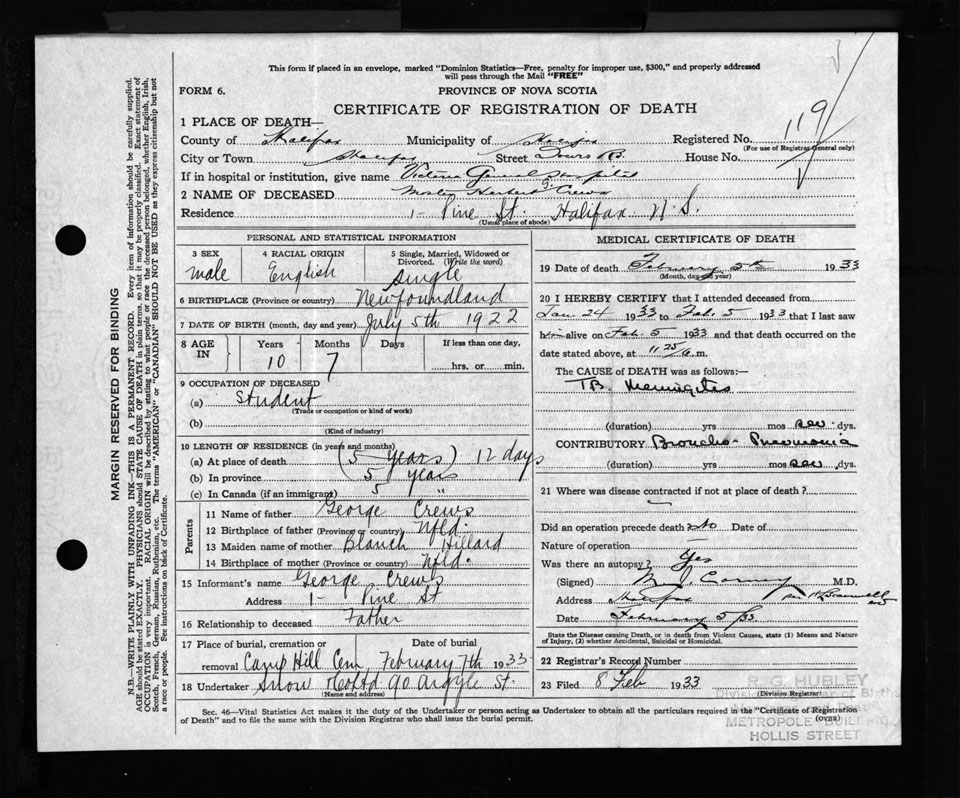 This form if placed in an envelope, marked "Dominion Statistics—Free, penalty for improper use, $300," and properly addressed
will pass through the Mail "FREE"
FORM 6.
PROVINCE OF NOVA SCOTIA
CERTIFICATE OF REGISTRATION OF DEATH
119
1 PLACE OF DEATH—
County of Halifax Municipality of Halifax Registered No.
(For use of Registrar General only)
City or Town Halifax Street House No.
If in hospital or institution, give name Victoria General Hospital
2 NAME OF DECEASED Herbert G. Crews
Residence 1- Pine St. Halifax N.S.
(Usual place of abode)
PERSONAL AND STATISTICAL INFORMATION
3 SEX male
4 RACIAL ORIGIN English
5 Single, Married, Widowed or Divorced. (Write the word) Single
6 BIRTHPLACE (Province or country) Newfoundland
7 DATE OF BIRTH (month, day and year) July 5th 1922
8 AGE IN Years 10 Months 7 Days If less than one day, hrs. or min.
9 OCCUPATION OF DECEASED
(a) Student
(Trade or occupation or kind of work)
(b)
(Kind of industry)
10 LENGTH OF RESIDENCE (in years and months)
(a) At place of death (5 years) 12 days
(b) In province 5 years
(c) In Canada (if an immigrant) 5 "
Parents
11 Name of father George Crews
12 Birthplace of father (Province or country) Nfld.
13 Maiden name of mother Blanch Hillard
14 Birthplace of mother (Province or country) Nfld.
15 Informant's name George Crews
Address 1- Pine St
16 Relationship to deceased Father
17 Place of burial, cremation or removal Camp Hill Cem. Date of burial February 7th 1933
18 Undertaker Snow & Co Ltd 90 Argyle St.
(Name and address)
MEDICAL CERTIFICATE OF DEATH
19 Date of death February 5th 1933
(Month, day and year)
20 I HEREBY CERTIFY that I attended deceased from
Jan 24 1933 to Feb. 5 1933 that I last saw
him alive on Feb. 5 1933 and that death occurred on the
date stated above, at 11 25 a.m.
The CAUSE of DEATH was as follows:—
TB. Meningites
(duration) yrs mos dys.
CONTRIBUTORY Broncho-Pneumonia
(duration) yrs mos dys.
21 Where was disease contracted if not at place of death?
Did an operation precede death no Date of
Nature of operation
Was there an autopsy? Yes
(Signed) M.D.
Address Halifax
Date February 5/33
State the Disease causing Death, or in death from Violent Causes, state (1) Means and Nature
of Injury, (2) whether Accidental, Suicidal or Homicidal.
22 Registrar's Record Number
23 Filed 8 Feb 1933
(Division Registrar)
R. G. HUBLEY
METROPOLE BUILDING
HOLLIS STREET
Sec. 46—Vital Statistics Act makes it the duty of the Undertaker or person acting as Undertaker to obtain all the particulars required in the "Certificate of Registration
of Death" and to file the same with the Division Registrar who shall issue the burial permit.
(OVER)
MARGIN RESERVED FOR BINDING
N.B.—WRITE PLAINLY WITH UNFADING INK—THIS IS A PERMANENT RECORD. Every item of information should be carefully supplied.
AGE should be stated EXACTLY. PHYSICIANS should STATE CAUSE OF DEATH in plain terms, so that it may be properly classified. Exact statement of
OCCUPATION is very important. RACIAL ORIGIN will be described by stating to what people or race the deceased person belonged, whether English, Irish,
Scotch, French, German, Russian, Ruthenian, etc. The terms "AMERICAN" or "CANADIAN" SHOULD NOT BE USED as they express citizenship but not
a race or people. See instructions on back of Certificate.